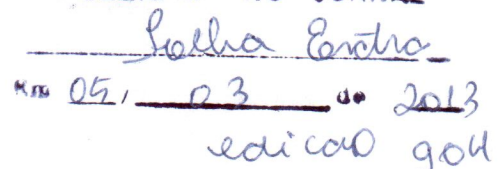 Folha Extra
Em 05, 03 de 2013
edicao 904